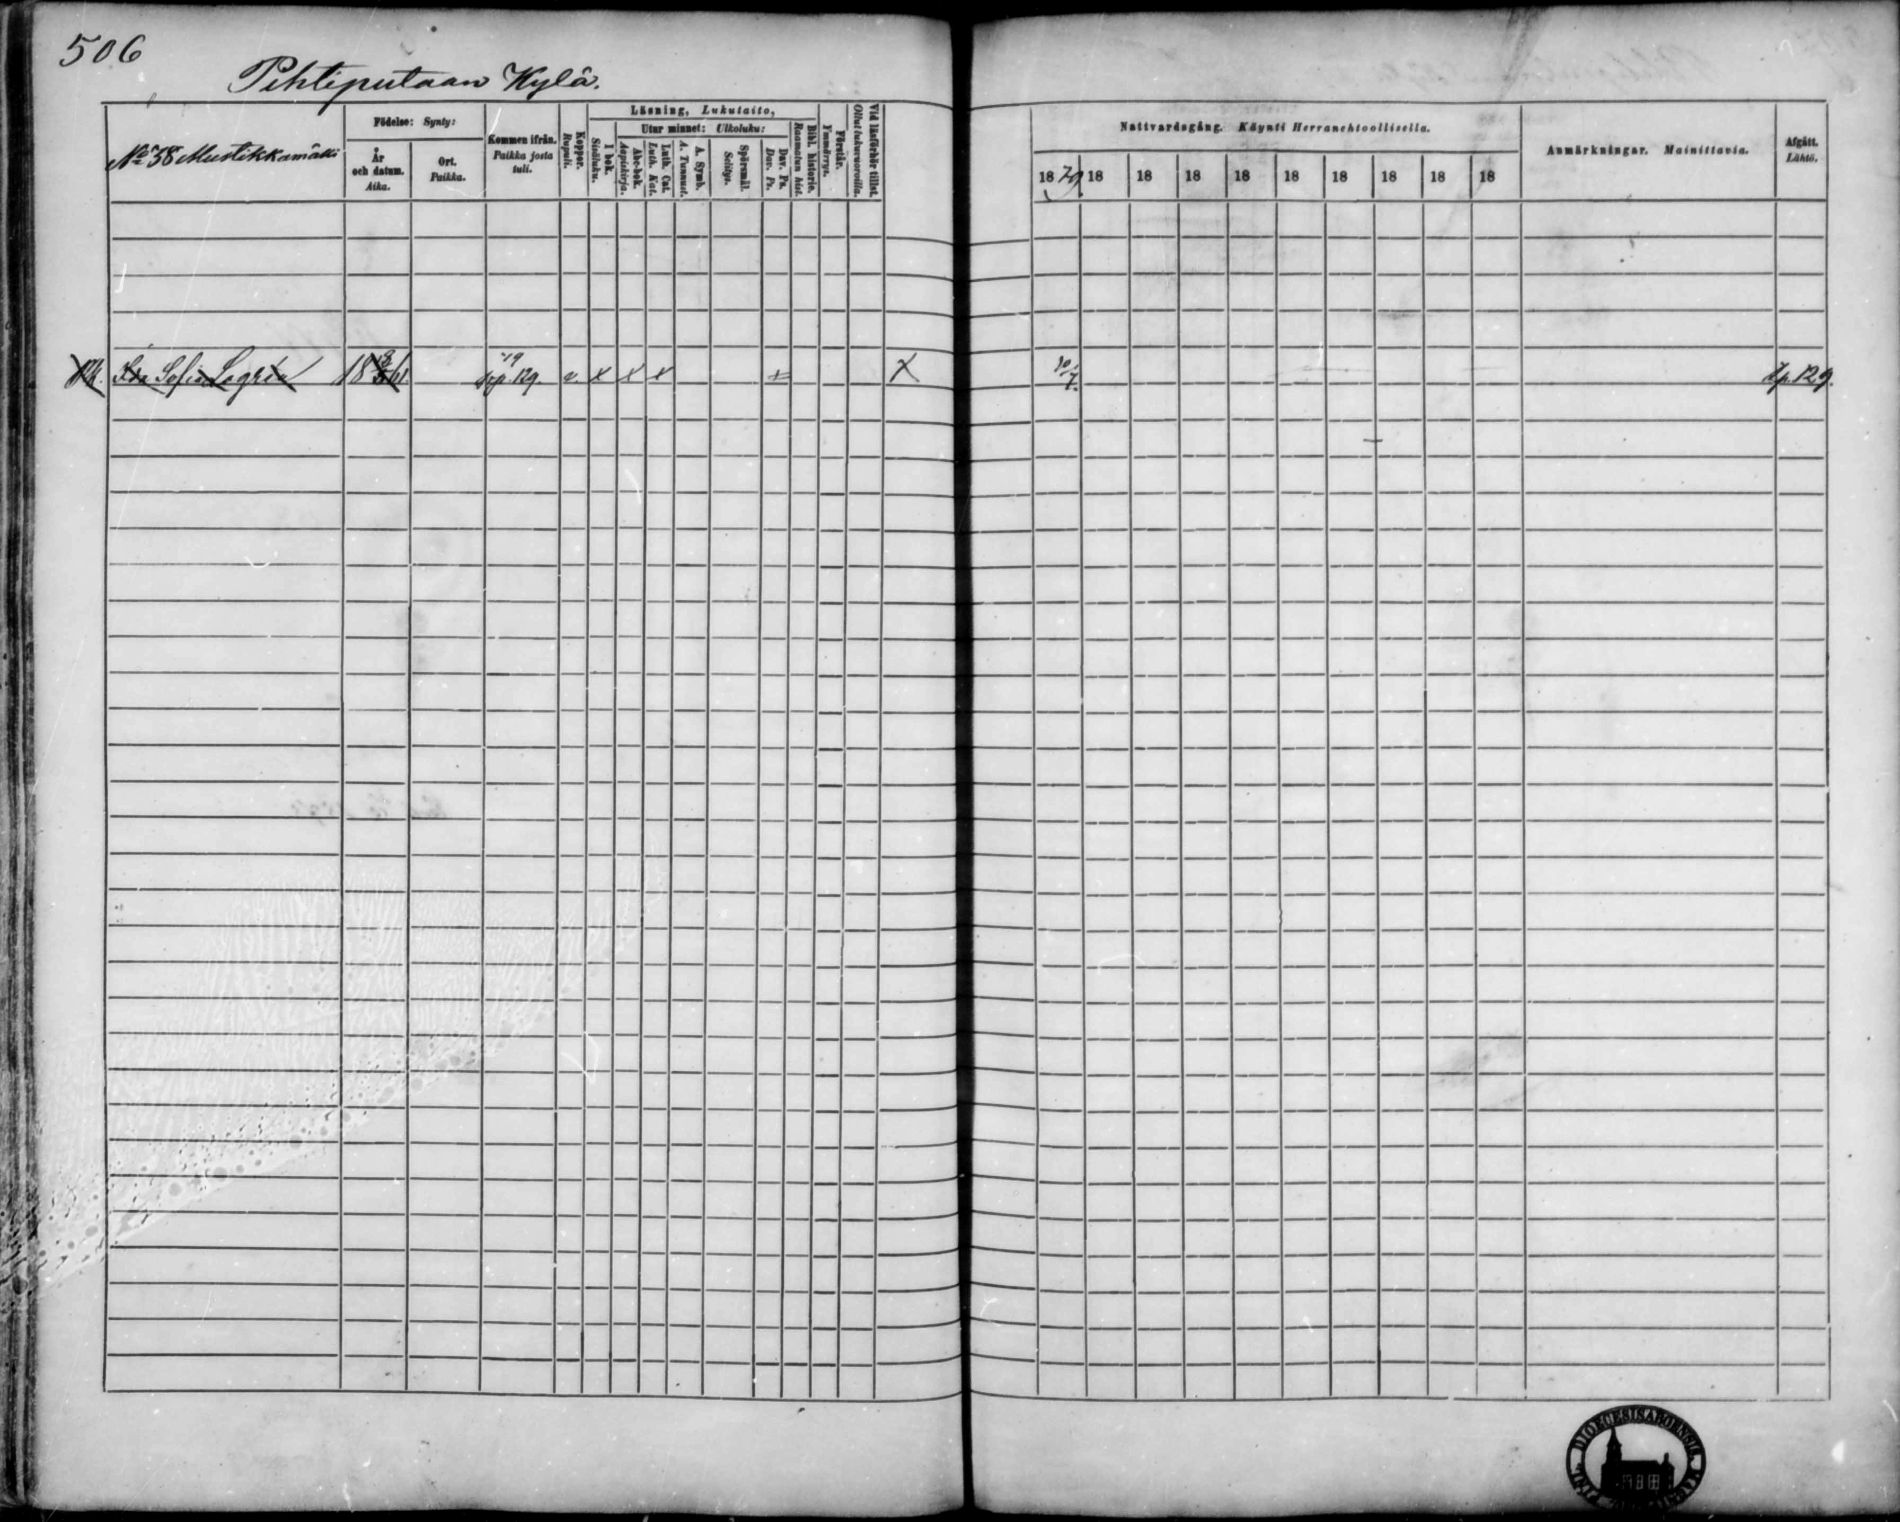 506
Pihtiputaan Kylä.
No 38 Mustikkamäki
Födelse: Synty:
År och datum. Aika.
Ort. Paikka.
Kommen ifrån. Paikka josta tuli.
Koppor. Rupuli.
Läsning, Lukutaito,
I bok. Sisäluku.
Utur minnet: Ulkoluku:
Abc-bok. Aapiskirja.
Luth. Cat. Luth. Kat.
A. Symb. A. Tunnust.
Spörsmål. Selitys.
Dav. Ps. Dav. Ps.
Bibl. historie. Raamatun hist.
Förstår. Ymmärrys.
Vid läsförhör tillst. Ollut lukuvuoroilla.
Nattvardsgång. Käynti Herranehtoollisella.
1879. 18 18 18 18 18 18 18 18 18
Anmärkningar. Mainittavia.
Afgått. Lähtö.
Ida Sofia Lagren 18 61. 79 Trp. 129. v. x x x x X 10/7. Trp. 129.
DIOECESIS ABOENSIS